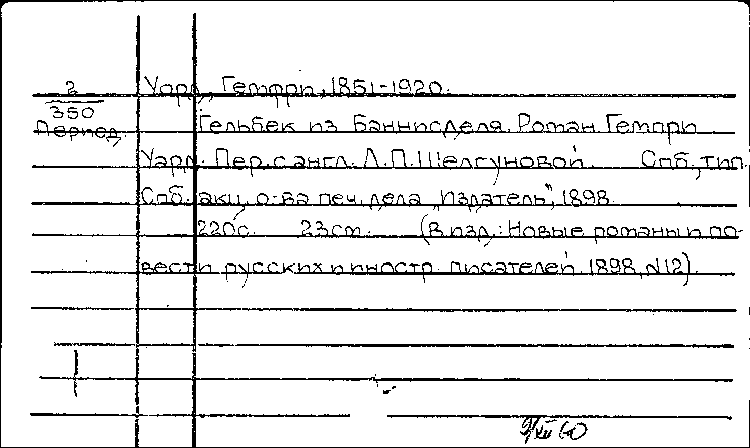 2
350
Период,
Уард, Гемфри, 1851-1920.
Гельбек из Баннисделя. Роман Гемфри
Уард. Пер. с англ. Л.П. Шелгуновой. Спб., тип.
Спб. акц. о-ва печ. дела "Издатель", 1898.
220 с. 23 см. (В изд.: Новые романы и по-
вести русских и иностр. писателей. 1898, №12)
9/XII 60